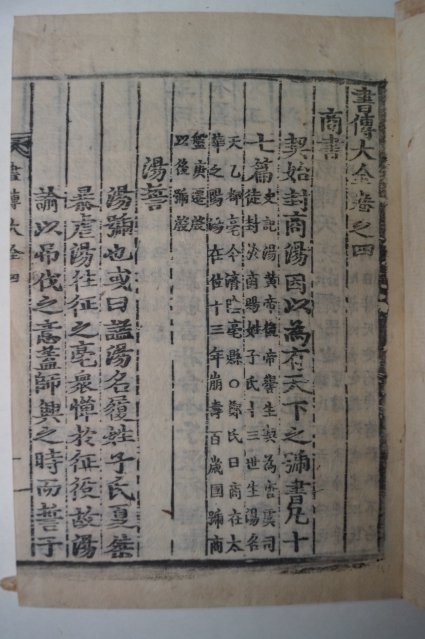 書傳大全卷之四
商書
契始封商湯因以為有天下之號書凡十
七篇
史記湯黃帝後帝嚳生契為唐虞司
徒封於商賜姓子氏十三世生湯名
天乙都亳今濟陰亳縣○鄭氏曰商在太
華之陽湯在位十三年崩壽百歲國號商
盤庚遷殷
以後號殷
湯誓
湯號也或曰謚湯名履姓子氏夏桀
暴虐湯往征之亳衆憚於征役故湯
諭以吊伐之意蓋師興之時而誓于
書傳大全四